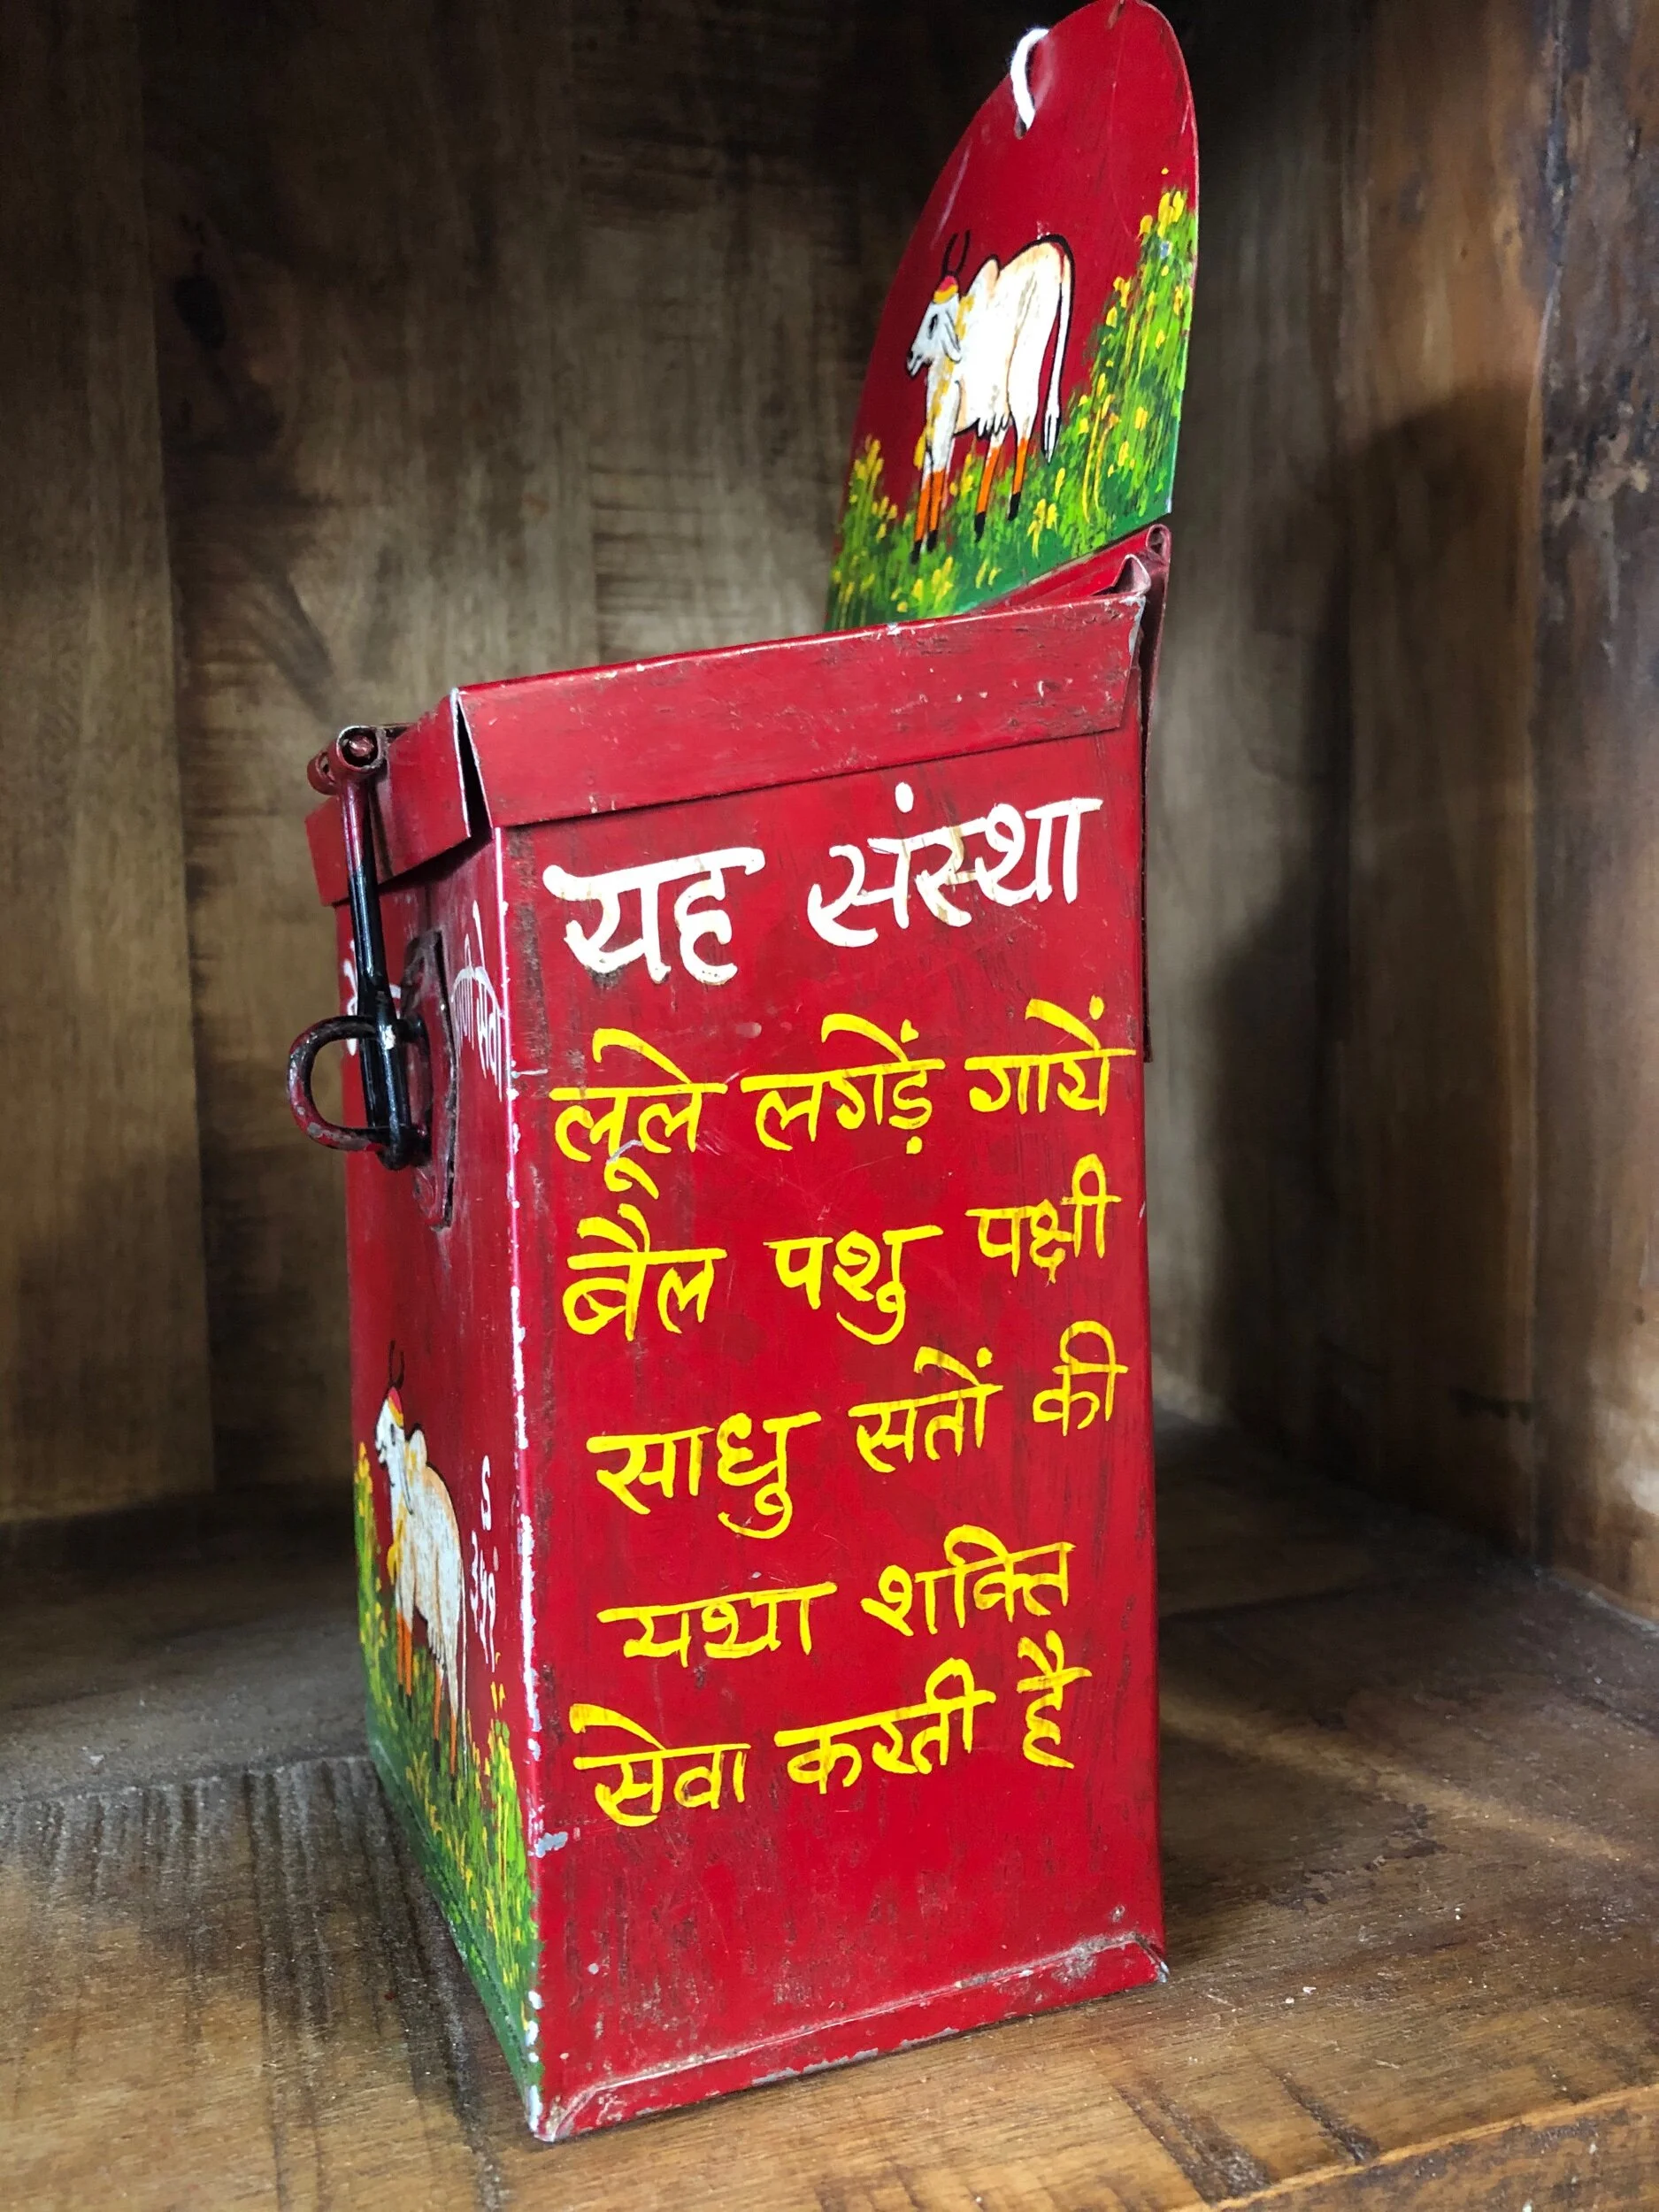 यह संस्था
लूले लगेड़ें गायें
बैल पशु पक्षी
साधु सतों की
यथा शक्ति
सेवा करती है